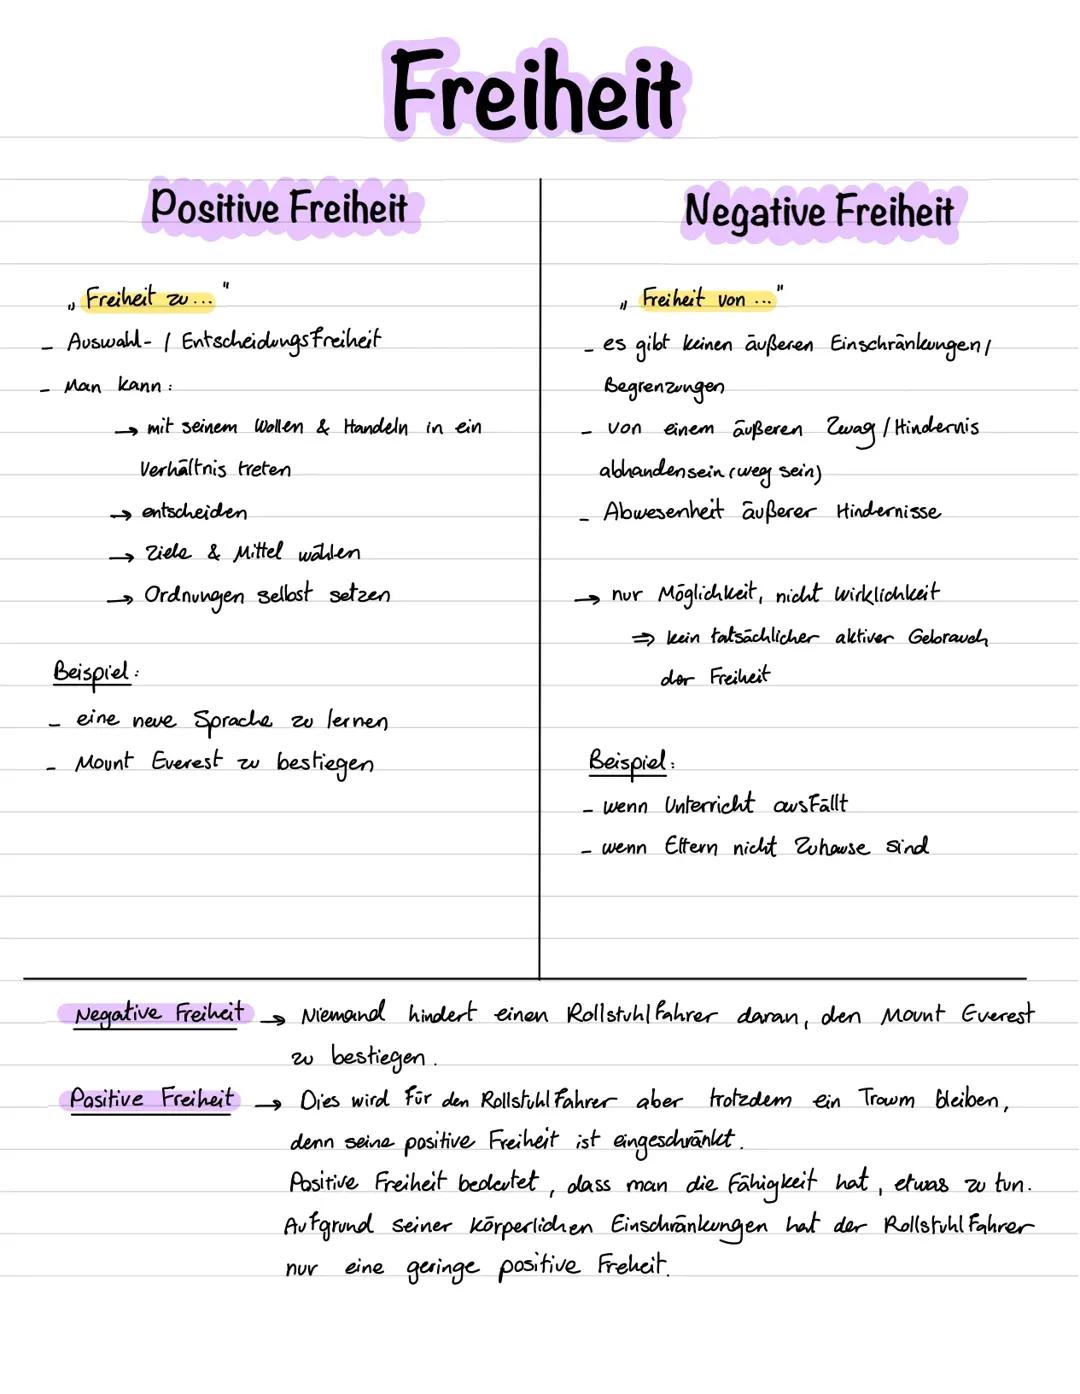 Freiheit
Positive Freiheit
„Freiheit zu..."
- Auswahl- / Entscheidungsfreiheit
- Man kann:
→ mit seinem Wollen & Handeln in ein
Verhältnis treten
→ entscheiden
→ Ziele & Mittel wählen
→ Ordnungen selbst setzen
Beispiel:
- eine neue Sprache zu lernen
- Mount Everest zu bestiegen
Negative Freiheit
„Freiheit von ..."
- es gibt keinen äußeren Einschränkungen/
Begrenzungen
- von einem äußeren Zwag / Hindernis
abhandensein (weg sein)
- Abwesenheit äußerer Hindernisse
→ nur Möglichkeit, nicht Wirklichkeit
⇒ kein tatsächlicher aktiver Gebrauch
der Freiheit
Beispiel:
- wenn Unterricht ausfällt
- wenn Eltern nicht Zuhause sind
Negative Freiheit → Niemand hindert einen Rollstuhlfahrer daran, den Mount Everest
zu bestiegen.
Positive Freiheit → Dies wird für den Rollstuhlfahrer aber trotzdem ein Traum bleiben,
denn seine positive Freiheit ist eingeschränkt.
Positive Freiheit bedeutet, dass man die Fähigkeit hat, etwas zu tun.
Aufgrund seiner körperlichen Einschränkungen hat der Rollstuhlfahrer
nur eine geringe positive Freheit.